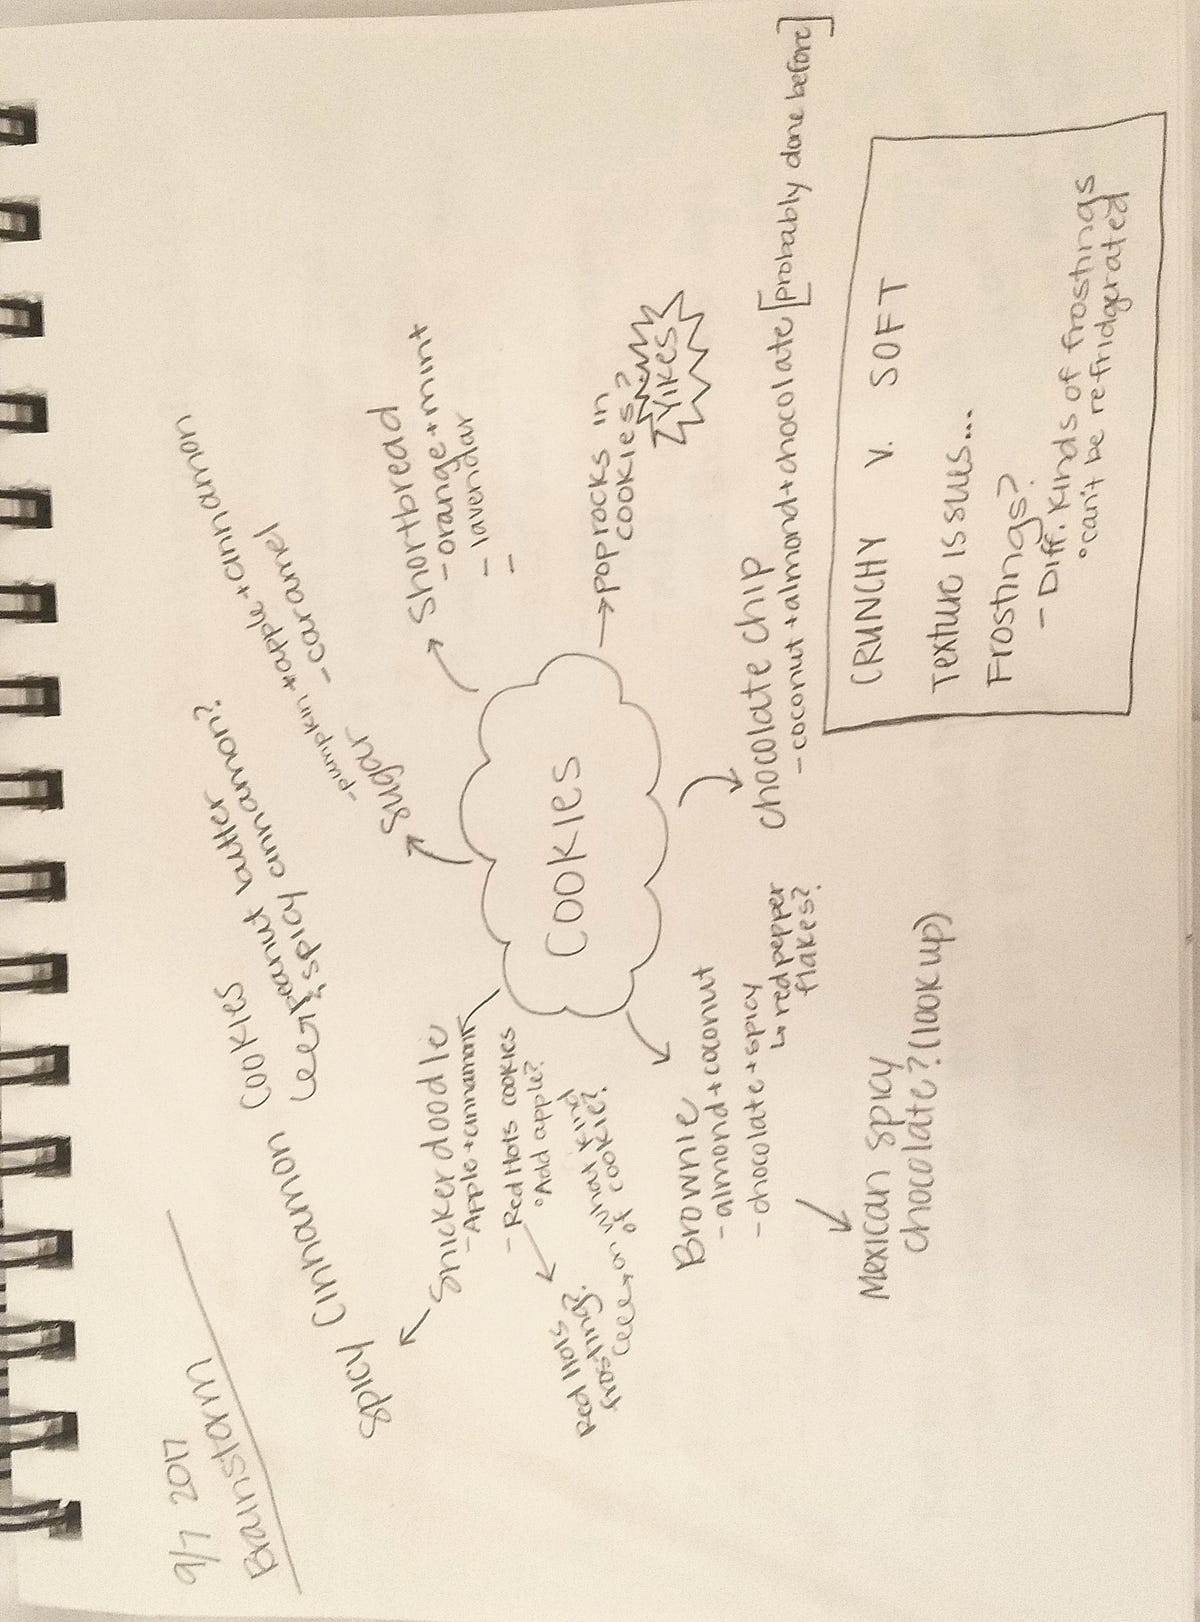 9/7 2017
Brainstorm
Spicy Cinnamon Cookies
peanut butter
& spicy cinnamon?
Snickerdoodle
- Apple + cinnamon
- Red Hots cookies
°Add apple?
Red Hots
frosting?
on what kind
of cookie?
Sugar
- pumpkin + apple + cinnamon
- caramel
Shortbread
- orange + mint
- lavendar
-
COOKIES
→ pop rocks in
cookies?
YIKES
Brownie
- almond + coconut
- chocolate + spicy
↳ red pepper
flakes?
Mexican spicy
chocolate? (look up)
chocolate chip
- coconut + almond + chocolate [probably done before]
CRUNCHY V. SOFT
Texture issues...
Frostings?
- Diff. kinds of frostings
°can't be refridgerated